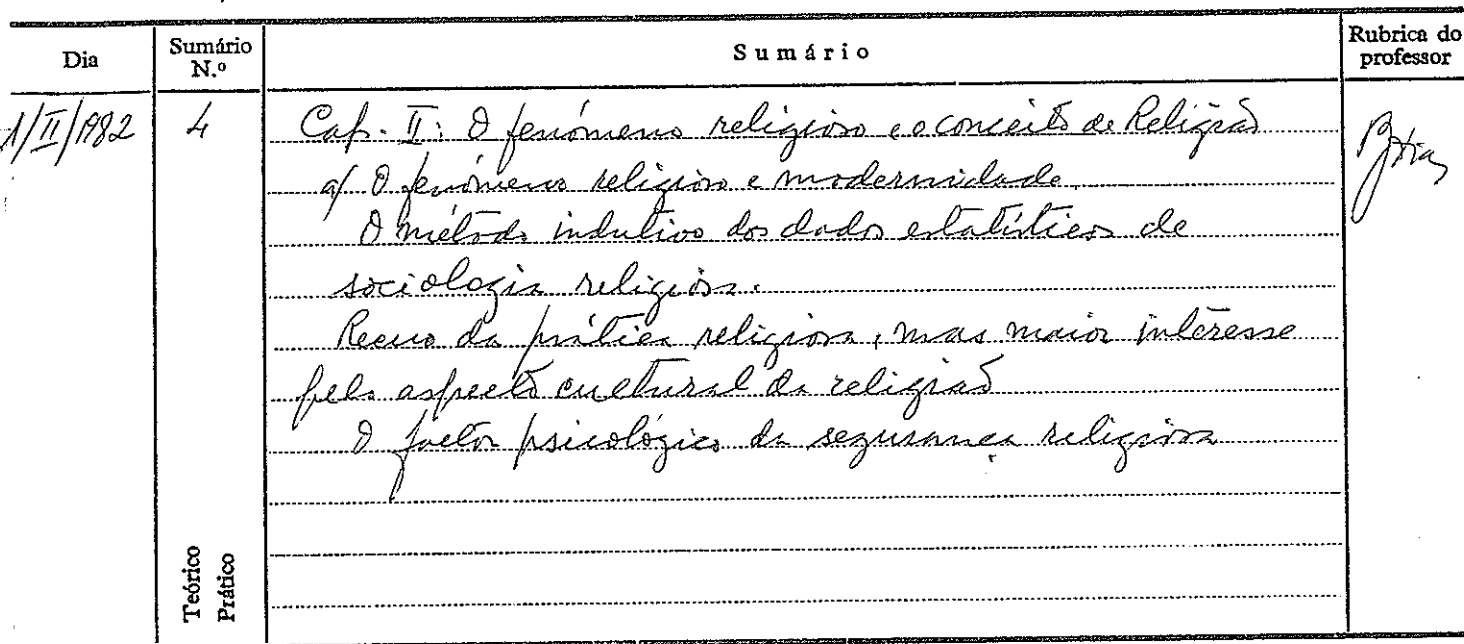 Dia
Sumário N.º
Sumário
Rubrica do professor
1/II/1982
4
Cap. II: O fenómeno religioso e o conceito de Religião
a/ O fenómeno religioso e modernidade.
O método indutivo dos dados estatísticos de
sociologia religiosa.
Recuo da prática religiosa, mas maior interesse
pelo aspecto cultural da religião
O factor psicológico da segurança religiosa
Teórico
Prático